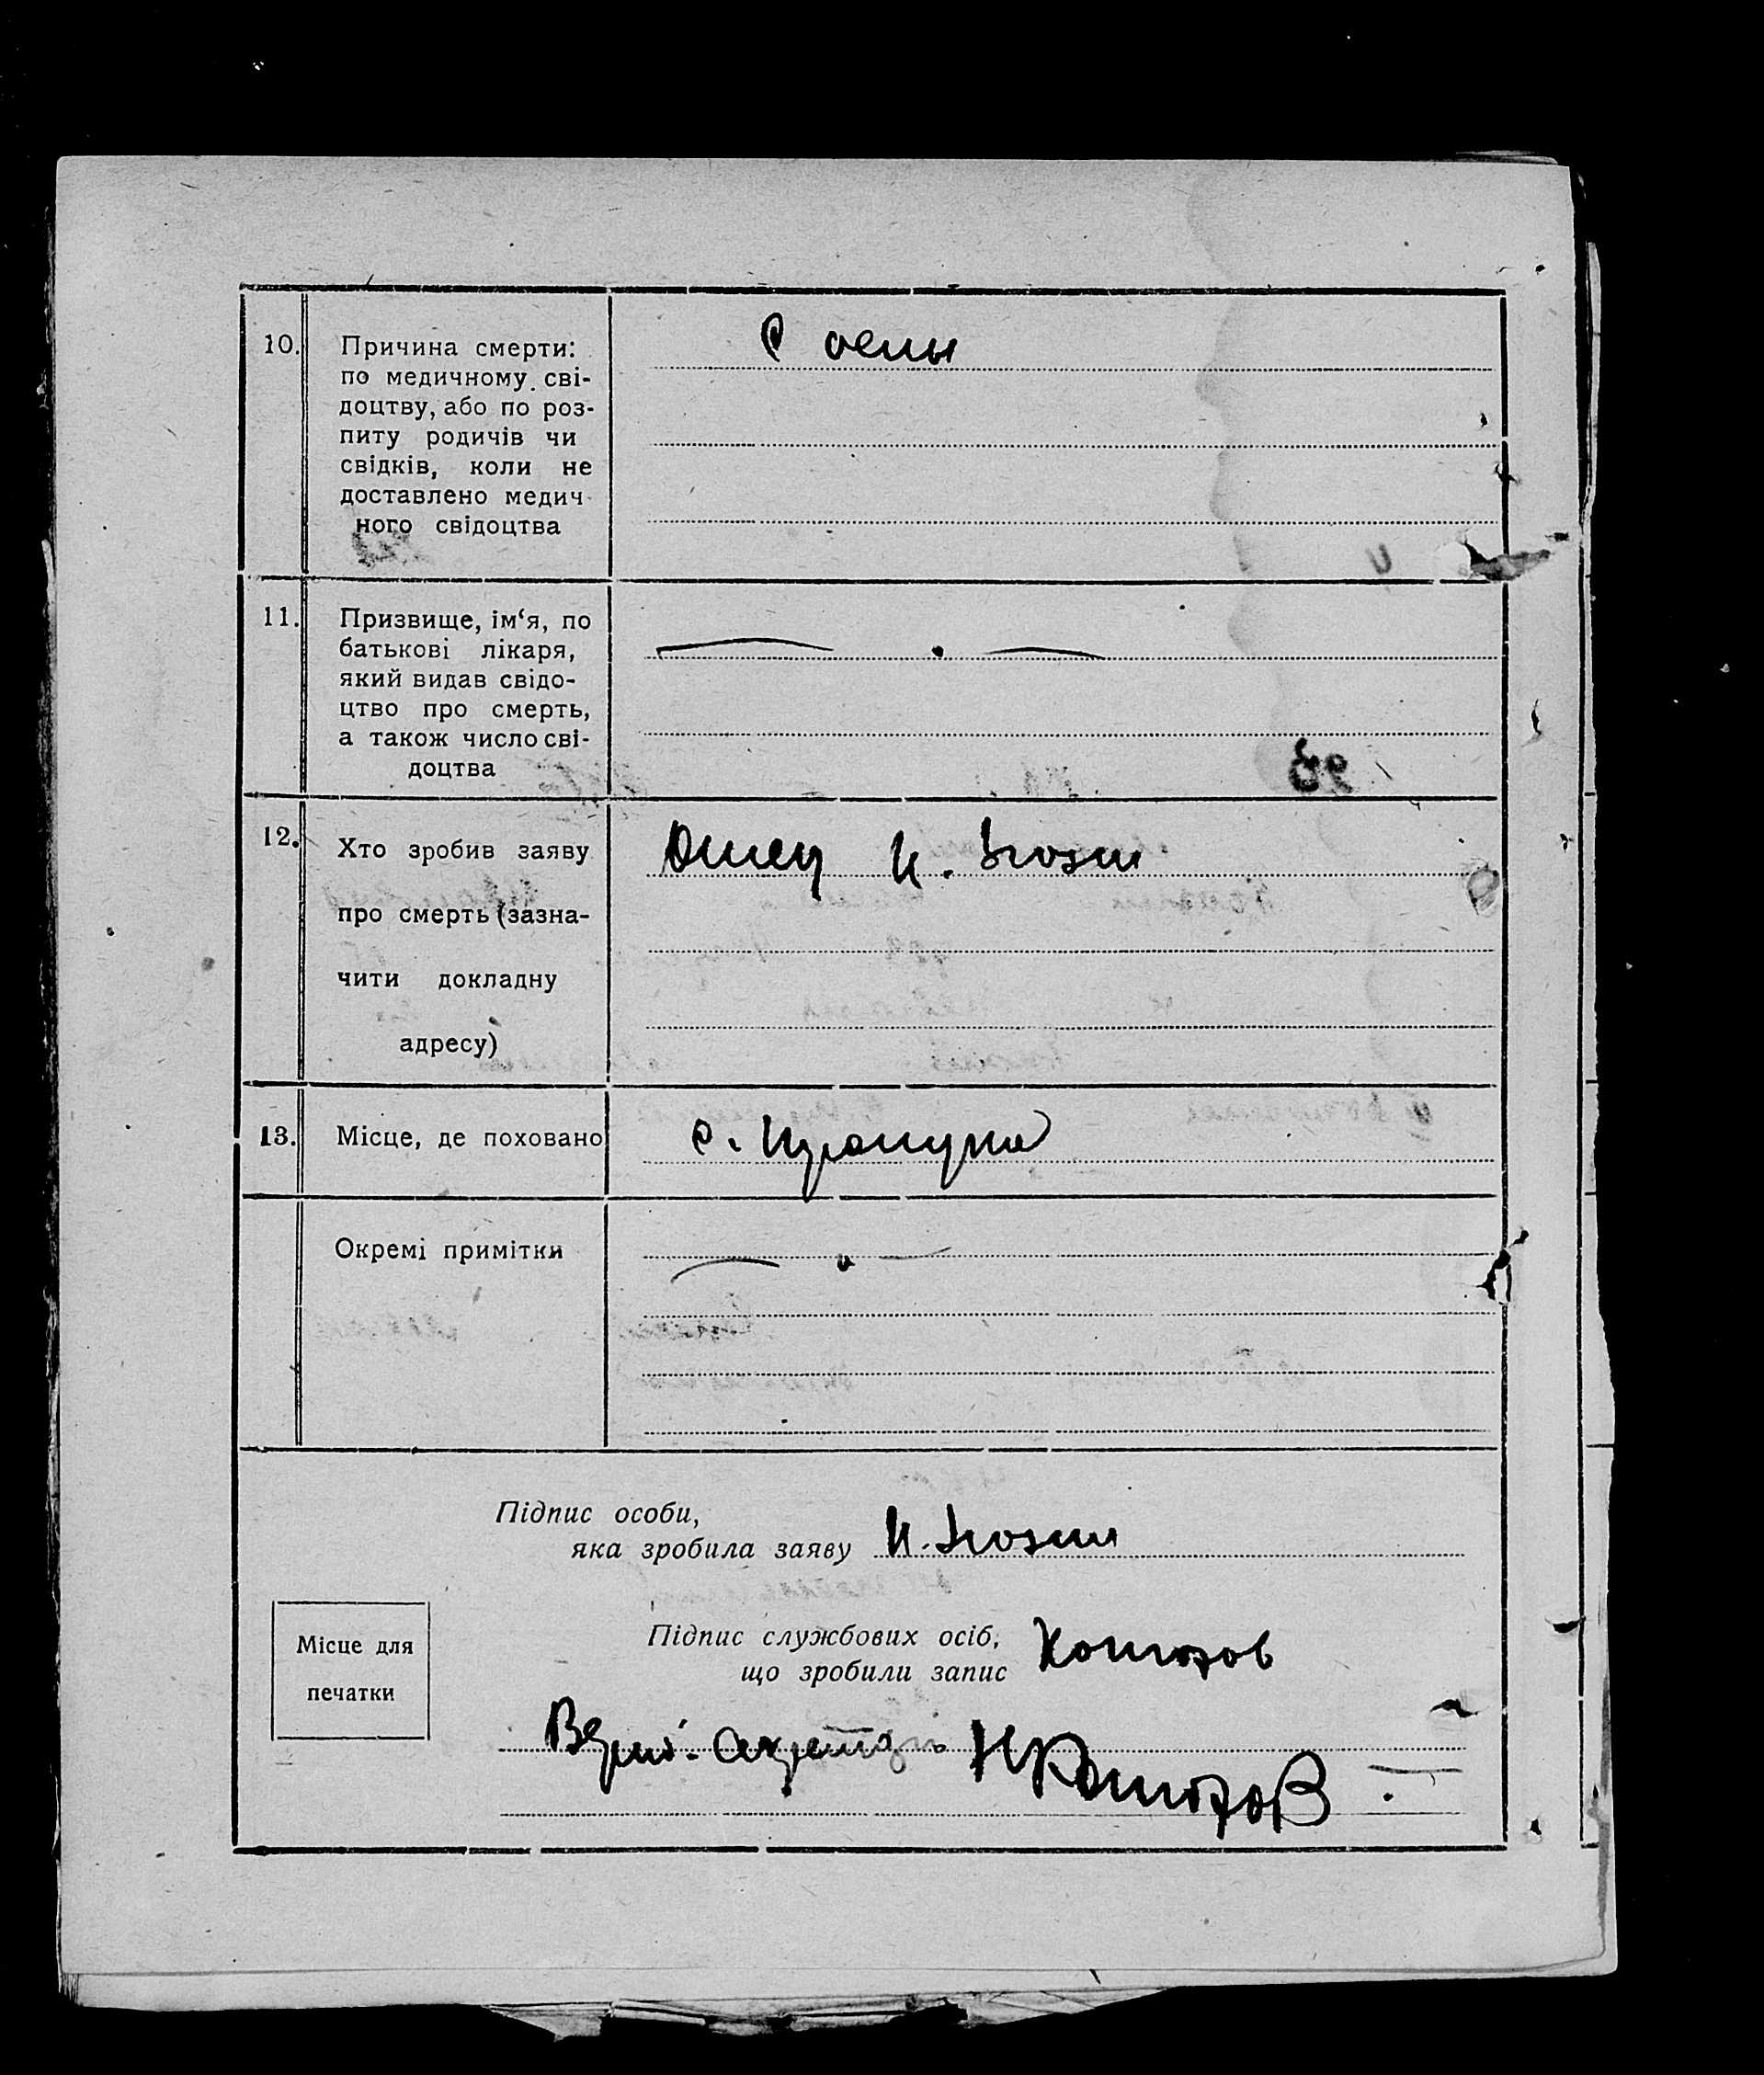 10. Причина смерти: С оспы
по медичному сві-
доцтву, або по роз-
питу родичів чи
свідків, коли не
доставлено медич-
ного свідоцтва
11. Призвище, ім‘я, по
батькові лікаря,
який видав свідо-
цтво про смерть,
а також число сві-
доцтва
12. Хто зробив заяву Отец И.
про смерть (зазна-
чити докладну
адресу)
13. Місце, де поховано с.
Окремі примітки
Підпис особи,
яка зробила заяву И.
Підпис службових осіб,
що зробили запис
Місце для
печатки